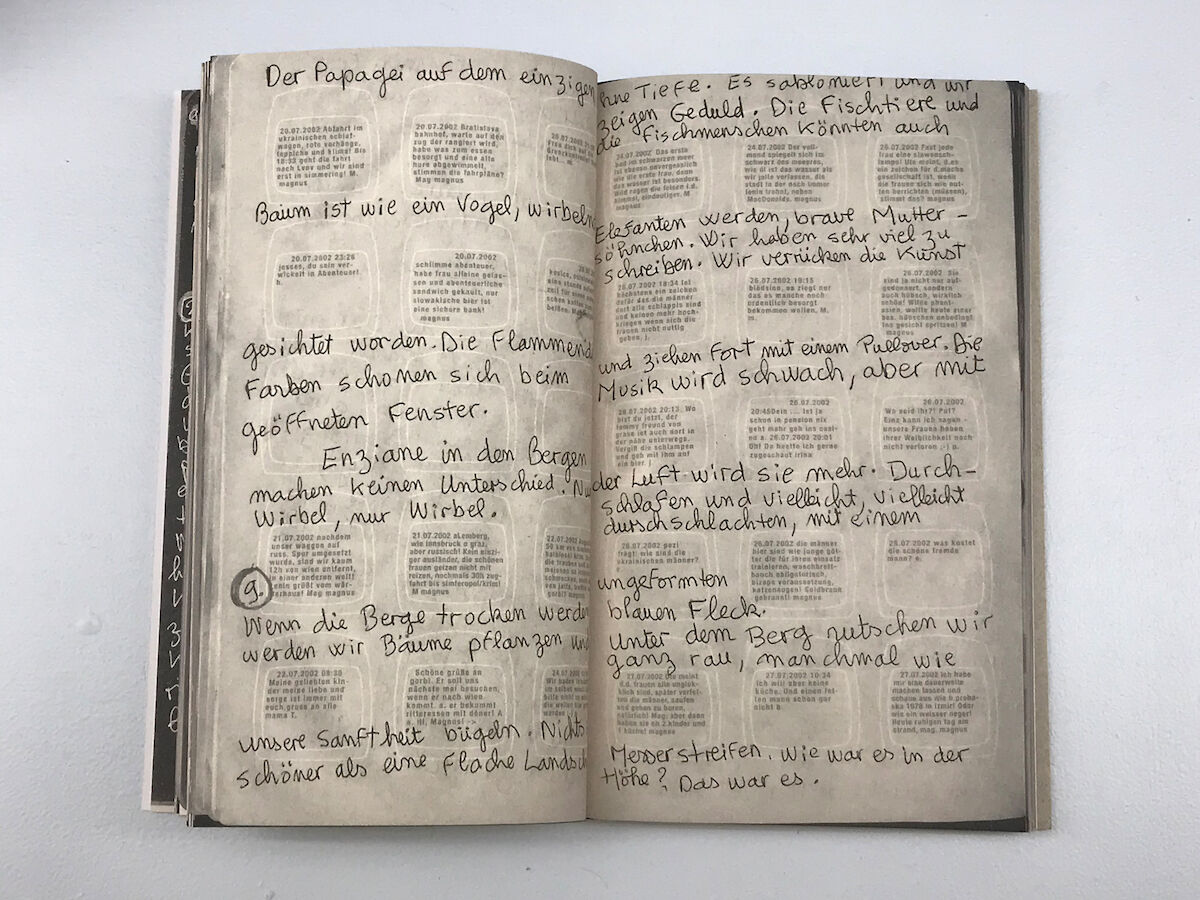 Der Papagei auf dem einzigen
20.07.2002 Abfahrt im
ukrainischen schlaf-
wagen, rote vorhänge,
teppiche und klima! Bis
18:33 geht die fahrt
nach Lvov und wir sind
erst in simmering! M.
magnus
20.07.2002 Bratislava
bahnhof, warte auf den
zug der rangiert wird,
habe was zum essen
besorgt und eine alte
hure abgewimmelt,
stimmen die fahrpläne?
May magnus
Baum ist wie ein Vogel, wirbeln
20.07.2002 23:26
jesses, du sein ver-
wickelt in Abenteuer!
h.
20.07.2002
schlimme abenteuer,
habe frau alleine gelas-
sen und abenteuerliche
sandwich gekauft, nur
slowakische bier ist
eine sichere bank!
magnus
gesichtet worden. Die Flammend
Farben schonen sich beim
geöffneten Fenster.
Enziane in den Bergen
machen keinen Unterschied. Nu
Wirbel, nur Wirbel.
21.07.2002 nachdem
unser waggon auf
russ. Spur umgesetzt
wurde, sind wir kaum
12h von wien entfernt,
in einer anderen welt!
lenin grüßt vom wär-
terhaus! Mag magnus
21.07.2002 aLemberg,
wie innsbruck o graz,
aber russisch! Kein einzi-
ger ausländer, die schönen
frauen geizen nicht mit
reizen, nochmals 30h zug-
fahrt bis simferopol/krim!
M magnus
9.
Wenn die Berge trocken werden
werden wir Bäume pflanzen und
22.07.2002 08:38
Meine geliebten kin-
der meine liebe und
sorge ist immer mit
euch,gruss an alle
mama T.
Schöne grüße an
gorbi. Er soll uns
nächste mal besuchen,
wenn er nach wien
kommt. a. er bekommt
zitteressen mit döner! A
a. ili, Magnus! ->
unsere Sanftheit bügeln. Nichts
schöner als eine flache Landsch
hne Tiefe. Es sabloniert und wir
zeigen Geduld. Die Fischtiere und
die Fischmenschen könnten auch
24.07.2002 Das erste
bad im schwarzen meer
ist ebenso unvergesslich
wie die erste frau, denn
das wasser ist besonders.
Wild ragen die felsen i.d.
himmel, eindeutiger. M
magnus
24.07.2002 Der voll-
mond spiegelt sich im
schwarz des meeres,
wie öl ist das wasser als
wir jalta verlassen, die
stadt in der noch immer
lenin trohnt, neben
MacDonalds. magnus
26.07.2002 Fast jede
frau eine slawensch-
lange! Ute meint, d.es
ein zeichen für d.mache
gesellschaft ist, wenn
die frauen sich wie nut-
ten herrichten (müssen),
stimmt das? magnus
Elefanten werden, brave Mutter-
söhnchen. Wir haben sehr viel zu
schreiben. Wir verrücken die Kunst
26.07.2002 18:34 ist
höchstens ein zeichen
dafür des die männer
dort alle schlappis sind
und keinen mehr hoch-
kriegen wenn sich die
frauen nicht nuttig
geben. j.
26.07.2002 19:15
blödsinn, es ziegt nur
das es manche noch
ordentlich besorgt
bekommen wollen. M.
m.
26.07.2002 Sie
sind ja nicht nur auf-
gedonnert, sondern
auch hübsch, wirklich
schön! Wilde phant-
asien, wollte heute einer
bes. hübschen unbedingt
ins gesicht spritzen! M
magnus
und ziehen fort mit einem Pullover. Die
Musik wird schwach, aber mit
26.07.2002 20:13. Wo
bist du jetzt, der
tommy freund von
grasse ist auch dort in
der nähe unterwegs.
Vergiß die schlampen
und geh mit ihm auf
ein bier. j
26.07.2002
20:45Dein ... ist ja
schon in pension nix
geht mehr geh ins casi-
no a. 26.07.2002 20:01
Uh! Da heatte ich gerne
zugeschaut irina
26.07.2002
Wo seid ihr?! Put?
Eins kann ich sagen -
unsere Frauen haben
ihrer Weiblichkeit noch
nicht verloren :-) p.
der Luft wird sie mehr. Durch-
schlafen und vielleicht, vielleicht
durschschlachten, mit einem
26.07.2002 gezi
frägt: wie sind die
ukrainischen männer?
26.07.2002 die männer
hier sind wie junge göt-
ter die für ihren einsatz
trainieren, waschbrett-
bauch obligatorisch,
bizeps voraussetzung,
katzenaugen! Goldbraun
gebrannt! magnus
26.07.2002 was kostet
die schöne fremde
mann? e.
ungeformten
blauen Fleck.
Unter dem Berg rutschen wir
ganz rau, manchmal wie
27.07.2002 Ute meint
d.d. frauen alle unglük-
klich sind, später verfet-
ten die männer, saufen
und gehen zu huren,
natürlich! Mag: aber dann
haben sie eh 2.kinder und
1 küche! magnus
27.07.2002 10:34
Ich will aber keine
küche. Und einen fet-
ten mann schon gar
nicht b
27.07.2002 ich habe
mir eine dauerwelle
machen lassen und
schaue aus wie b.proha-
ska 1978 in Izmir! Oder
wie ein weisser neger!
Heute ruhigen tag am
strand, mag. magnus
Messerstreifen. Wie war es in der
Höhe? Das war es.